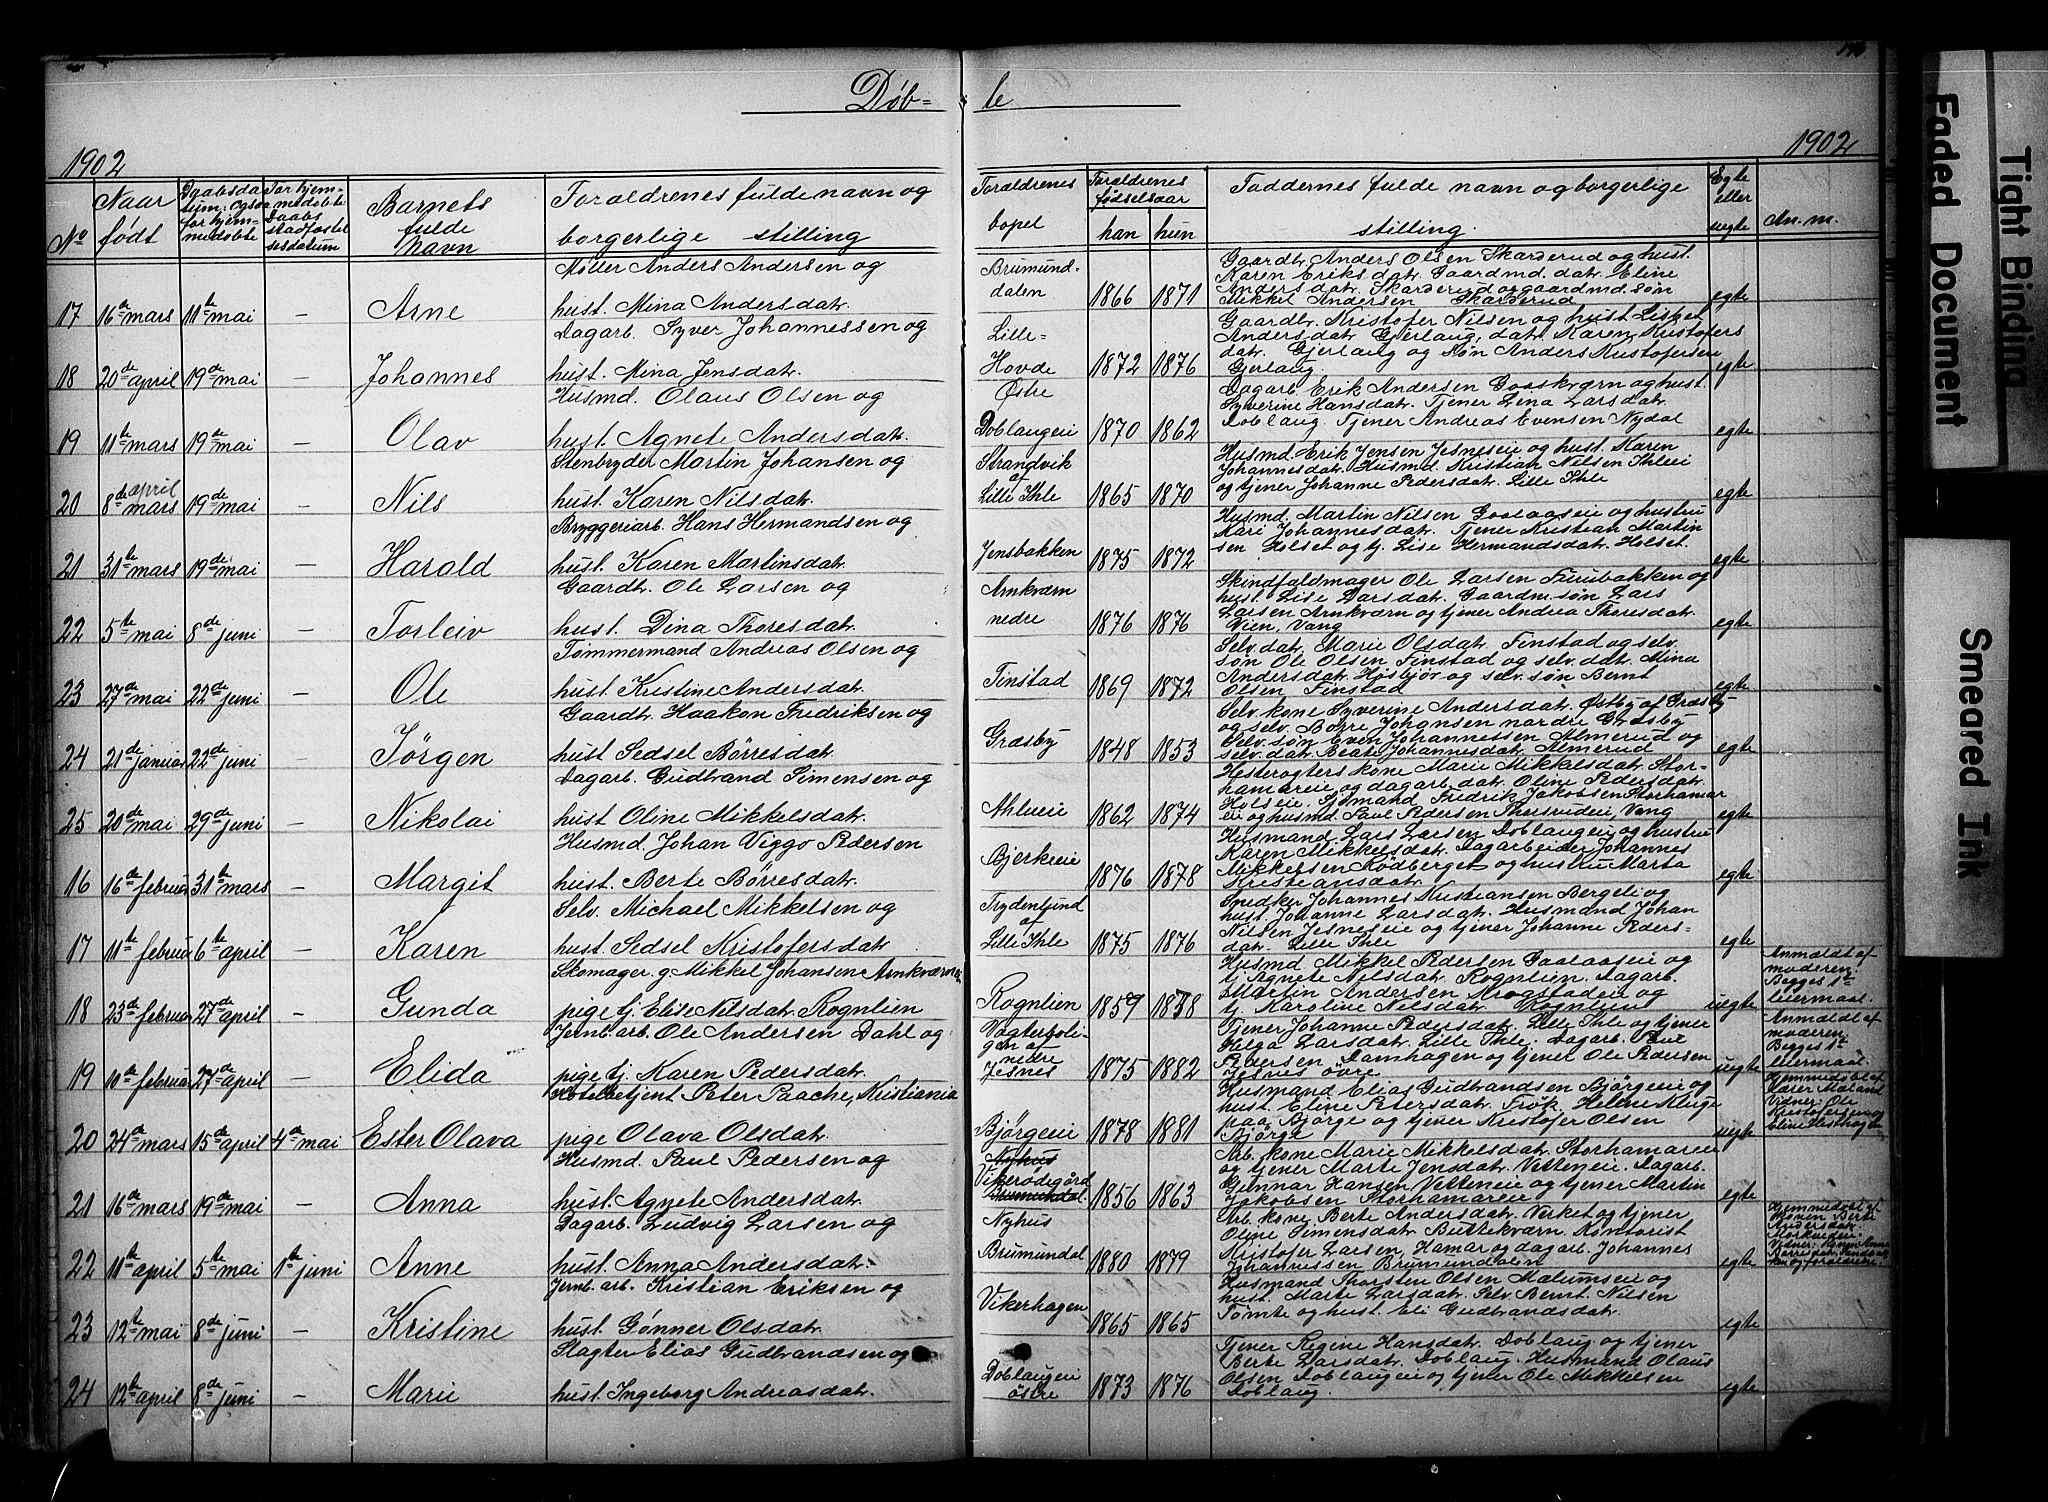 Døb= te
1902
1902
No
Naar født
Daabsdatum: ogsaa for hjemmedøbte
For hjemmedøbte Daabs stadfæstelsesdatum
Barnets fulde Navn
Forældrenes fulde navn og borgerlige stilling
Forældrenes bopel
Forældrenes fødselsaar
han hun
Faddernes fulde navn og borgerlige stilling.
Egte eller uegte
Anm.
17 16de mars 11te mai — Arne
Møller Anders Andersen og
hust. Mina Andersdatr.
Brumund-
dalen
1866 1871
Gaardbr. Anders Olsen Skarderud og hust.
Karen Eriksdatr. Gaardmd. datr. Eline
Andersdatr. Skarderud og gaardmd. søn
Mikkel Andersen Skarderud
egte
18 20de april 19de mai — Johannes
Dagarb. Syver Johannessen og
hust. Mina Jensdatr.
Lille-
Hovde
1872 1876
Gaardbr. Kristofer Nilsen og hust. Lisbet
Andersdatr. Gjerlaug, datr. Karen Kristofers
datr. Gjerlaug og søn Anders Kristofersen
Gjerlaug.
egte
19 11te mars 19de mai — Olav
Husmd. Olaus Olsen og
hust. Agnete Andersdatr.
Østre
Doblaugeie
1870 1862
Dagarb. Erik Andersen Gaaskværn og hust.
Syverine Hansdatr. Tjener Lina Larsdatr.
Doblaug. Tjener Andreas Evensen Nydal
egte
20 8de april mars 19de mai — Nils
Stenbryder Martin Johansen og
hust. Karen Nilsdatr.
Strandvik
af
Lille Ihle
1865 1870
Husmd. Erik Jensen Jesneseie og hust. Karen
Johannesdatr. Husmd. Kristian Nilsen Ihleei
og tjener Johanne Pedersdatr. Lille Ihle
egte
21 31te mars 19de mai — Harald
Bryggeriarb. Hans Hermandsen og
hust. Karen Martinsdatr.
Jensbakken
1875 1872
Husmd. Martin Nilsen Gaalaaseie og hustru
Kari Johannesdatr. Tjener Kristian Martin
sen Holset og tj. Lise Hermandsdatr. Holset.
egte
22 5te mai 8de juni — Torleiv
Gaardbr. Ole Larsen og
hust. Dina Thoresdatr.
Arnkværn
nedre
1876 1876
Skindfældmager Ole Larsen Furubakken og
hust. Lise Larsdatr. Gaardm. søn Lars
Larsen Arnkværn og tjener Andrea Thoresdatr.
Vien, Vang
egte
23 27de mai 22de juni Ole
Tømmermand Andreas Olsen og
hust. Kristine Andersdatr.
Finstad
1869 1872
Selv. datr. Marie Olsdatr. Finstad og selv.
søn Ole Olsen Finstad og selv. datr. Mina
Andersdatr. Høsbjør og selv. søn Bernt
Olsen Finstad
egte
24 21de januar 22de juni — Jørgen
Gaardbr. Haakon Fredriksen og
hust. Sedsel Børresdatr.
Græsby
1848 1853
Selv. kone Syverine Andersdatr. Østby af Græsby
og selv. Børre Johansen nordre Græsby
Selv. søn Even Johannessen Almerud og
selv. datr. Beate Johannesdatr. Almerud
egte
25 20de mai 29de juni — Nikolai
Dagarb. Gudbrand Simensen og
hust. Oline Mikkelsdatr.
Ahlueie
1862 1874
Hesterøgters kone Marie Mikkelsdatr. Stor-
hamareie og dagarb. datr. Oline Pedersdatr.
Holseie. Sjømand Fredrik Jakobsen Storhamar
ei og husmd. Paul Pedersen Thorsrudeie, Vang
egte
16 16de februar 31te mars — Margit
Husmd. Johan Viggo Pedersen
hust. Berte Børresdatr.
Bjerkeie
1876 1878
Husmand Lars Larsen Doblaugeie og hustru
Karen Mikkelsdatr. Dagarbeider Johannes
Mikkelsen Rødberget og hustru Marta
Kristiansdatr.
egte
17 11te februar 6te april — Karen
Selv. Michael Mikkelsen og
hust. Sedsel Kristofersdatr.
Frydenlund
af
Lille Ihle
1875 1876
Snedker Johannes Kristiansen Bergeli og
hust. Johanne Larsdatr. Husmand Johan
Nilsen Jesneseie og tjener Johanne Peders-
datr. Lille Ihle
egte
18 23de februar 27de april — Gunda
Skomager g. Mikkel Johansen Arnkværnei
pige tj. Elise Nilsdatr. Rognlien
Rognlien
1859 1878
Husmd Mikkel Pedersen Gaalaaseie og
tj. Agnete Nilsdatr. Rognlien. Dagarb.
Martin Andersen Krogstadeie og
tj. Karoline Nilsdatr. Rognlien
uegte
Anmeldt af
moderen.
Begges 1ste
leiermaal.
19 10de februar 27de april — Elida
Jernb. arb. Ole Andersen Dahl og
pige tj. Karen Pedersdatr.
Vogterboli-
gen af
nedre
Jesnes
1875 1882
Tjener Johanne Pedersdatr. Lille Ihle og tjener
Helga Larsdatr. Lille Ihle. Dagarb. Paul
Pedersen Damhagen og tjener Ole Pedersen
Jesnes øvre.
uegte
Anmeldt af
moderen.
Begges 1ste
leiermaal.
20 24de mars 15de april 4de mai Ester Olava
Hotelbetjent Peter Paache, Kristiania
pige Olava Olsdatr.
Bjørgeie
1878 1881
Husmand Elias Gudbrandsen Bjørgeie og
hust. Eline Petersdatr. Frøk. Helene Kluge
paa Bjørge og tjener Kristofer Olsen
Bjørge
uegte
Hjemmedøbt af
Lærer Mæland
Vidner: Ole
Kristofersen og
Eline Hesthagen
21 16de mars 19de mai — Anna
Husmd. Paul Pedersen og
hust. Agnete Andersdatr.
Nyhus
Vikerødegård
Brumunddal.
1856 1863
Arb. kone Marie Mikkelsdatr. Storhamareie
og tjener Marte Jensdatr. Vetteneie. Dagarb.
Gunnar Hansen Vetteneie og tjener Martin
Jakobsen Storhamareie
egte
22 11te april 5te mai 1ste juni Anne
Dagarb. Ludvig Larsen og
hust. Anna Andersdatr.
Nyhus
Brumundal
1880 1879
Arb. kone Berte Andersdatr. Virket og tjener
Oline Simensdatr. Buttekværn. Kontorist
Kristofer Larsen, Hamar og dagarb. Johannes
Johannessen Brumundalen
egte
Hjemmedøbt af
Konen Berte
Andersdatr.
23 12te mai 8de juni — Kristine
Jernb. arb. Kristian Eriksen og
hust. Gønner Olsdatr.
Vikerhagen
1865 1865
Husmand Thorsten Olsen Malumseie og
hust. Marte Larsdatr. Selv. Bernt Nilsen
Tømte og hust. Eli Gudbrandsdatr.
egte
24 12te april 8de juni — Marie
Slagter Elias Gudbrandsen og
hust. Ingeborg Andreasdatr.
Doblaugeie
østre
1873 1876
Tjener Regine Hansdatr. Doblaug og tjener
Berte Larsdatr. Doblaug. Husmand Olaus
Olsen Doblaugeie og tjener Ole Mikkelsen
Doblaug.
egte
Tight Binding
Faded Document
Smeared Ink